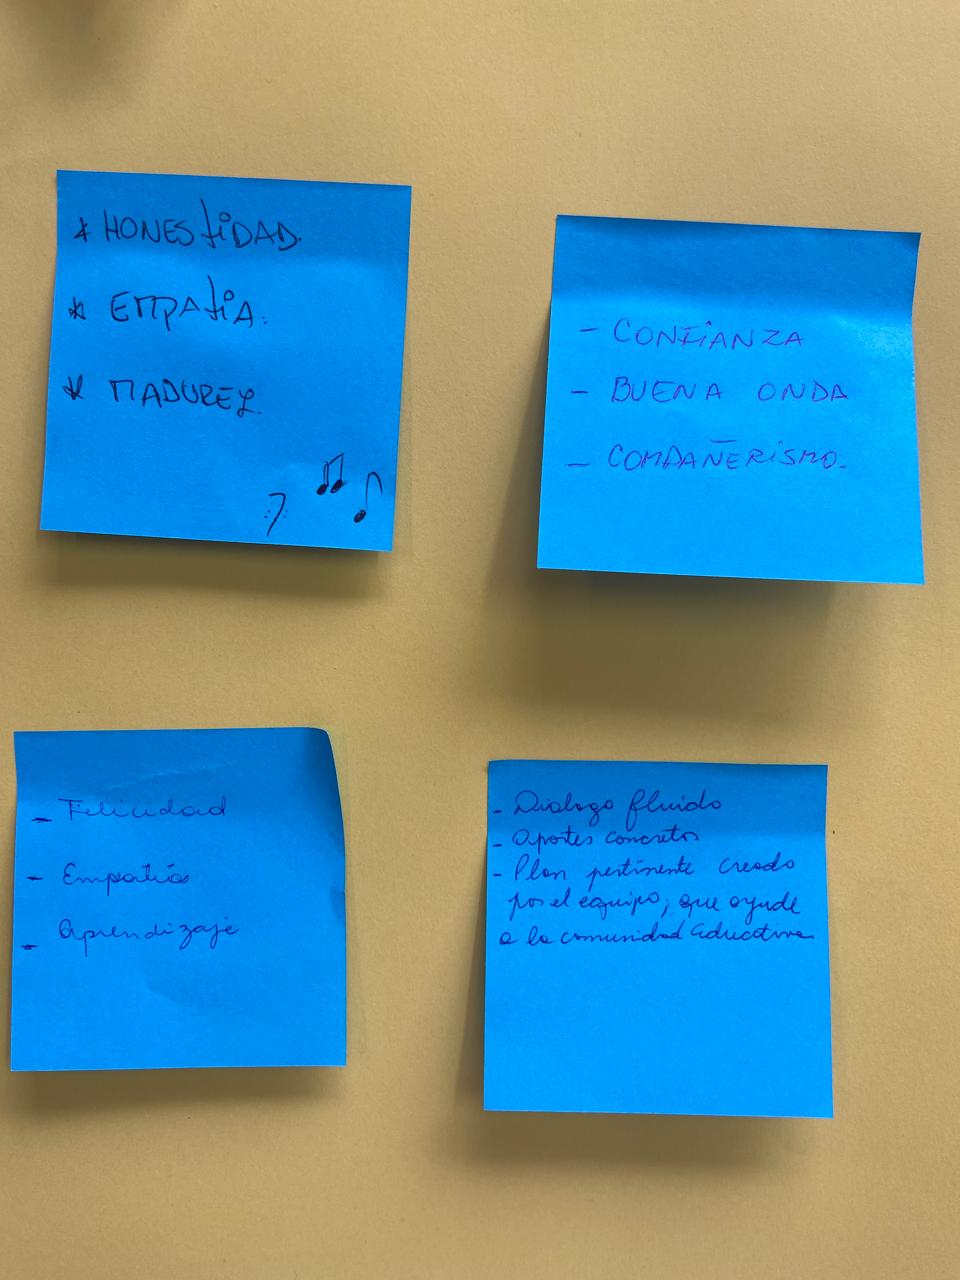 * HONEStiDAD.
* EMPAtiA.
* MADUREZ.
- CONFiANZA
- BUENA ONDA
- COMPAÑERiSMO.
- Felicidad
- Empatía
- Aprendizaje
- Dialogo fluido
- Aportes concretos
- Plan pertinente creado
por el equipo; que ayude
a la comunidad Educativa.